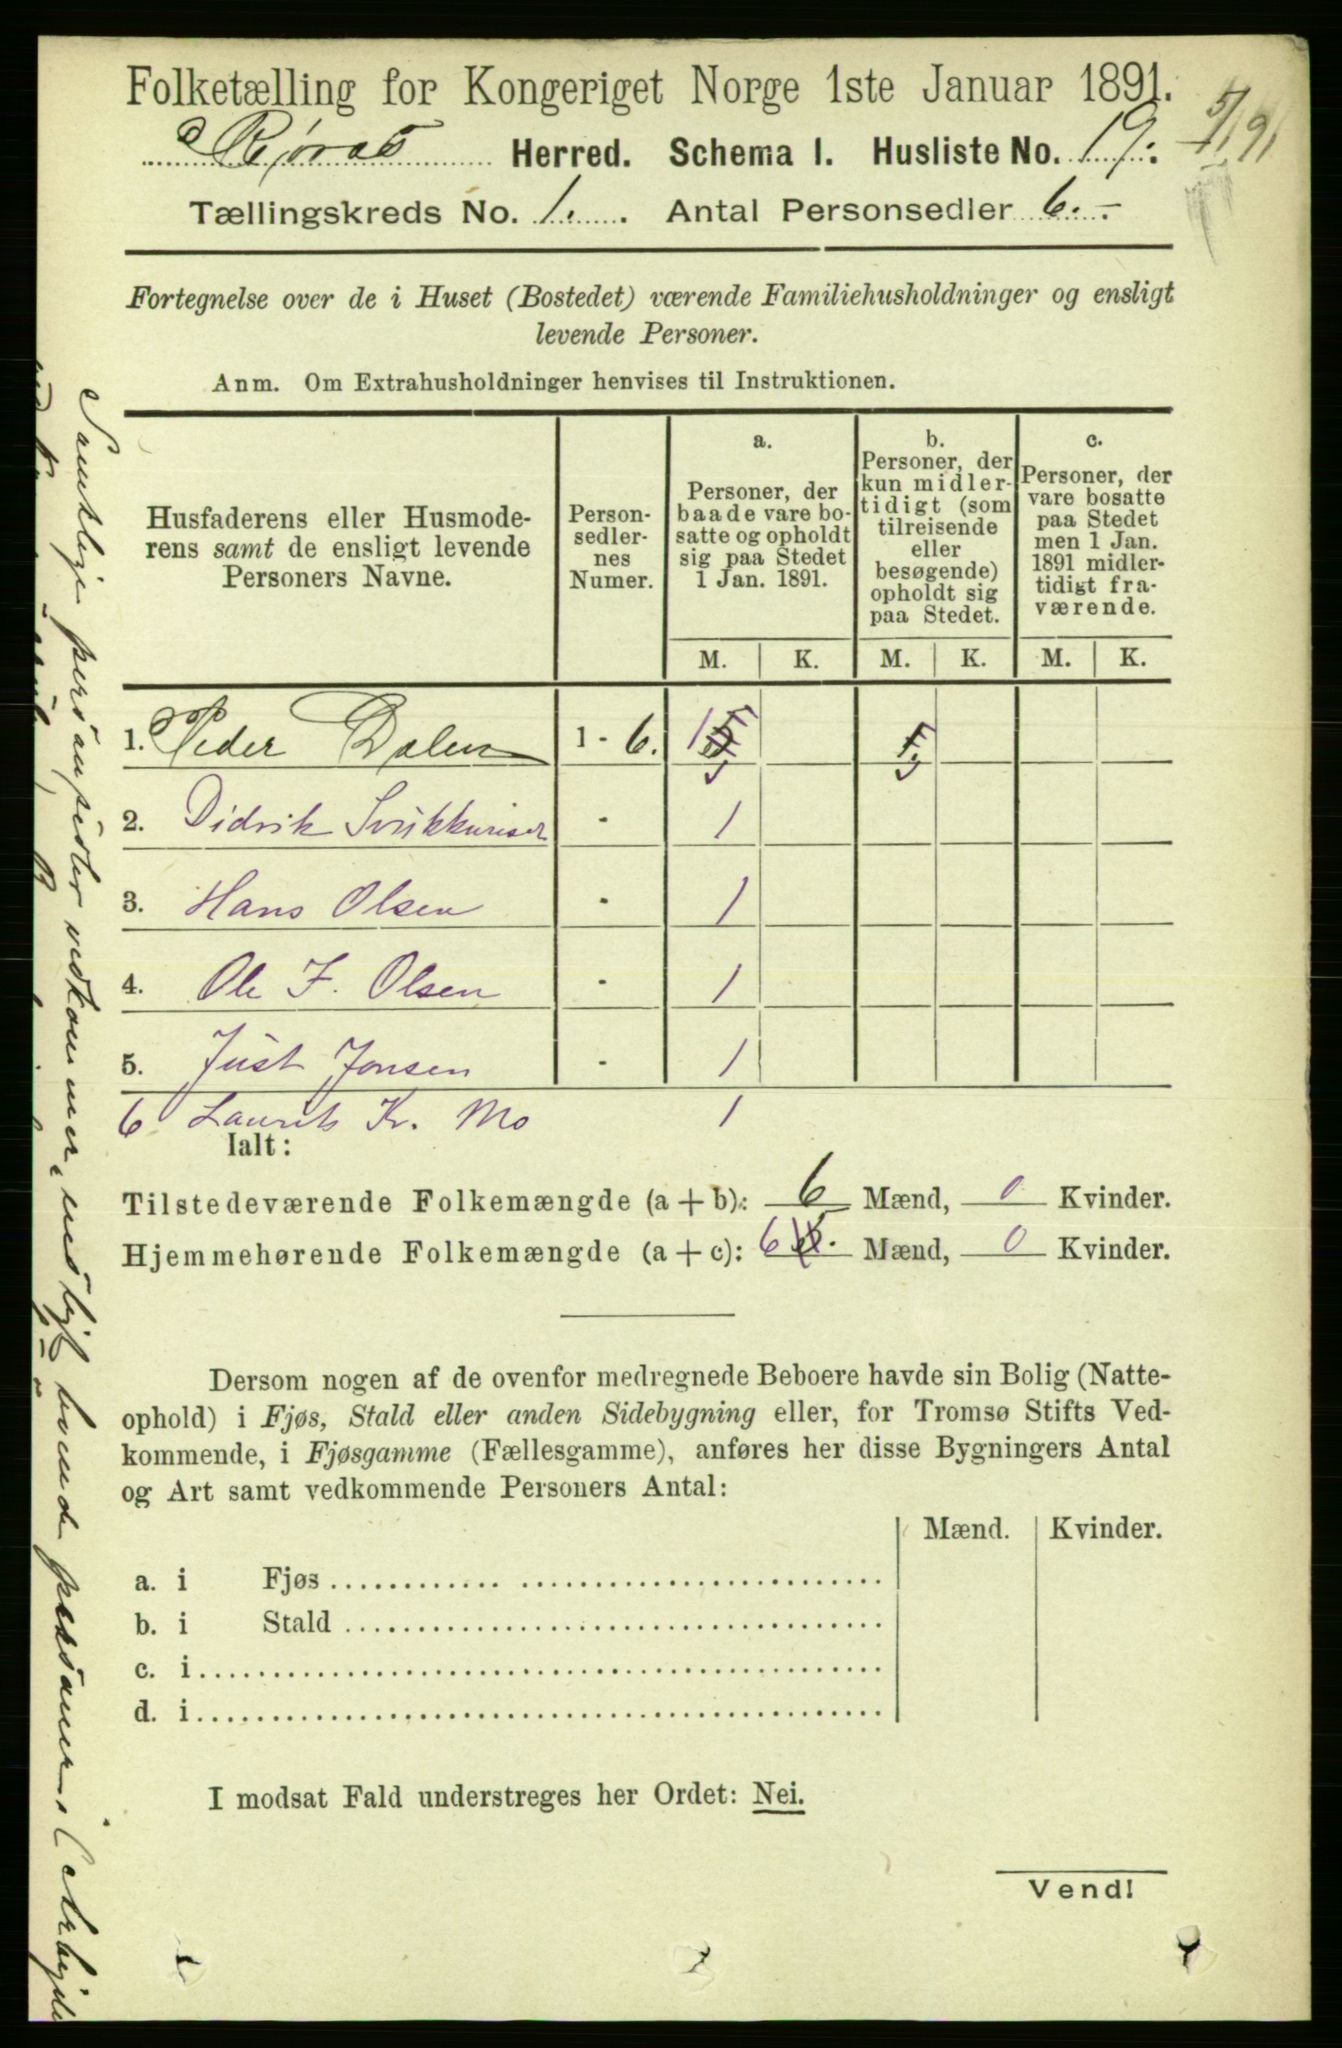 Folketælling for Kongeriget Norge 1ste Januar 1891.
Røros Herred. Schema 1. Husliste No. 19.
5/1 91
Tællingskreds No. 1. Antal Personsedler 6.-
Fortegnelse over de i Huset (Bostedet) værende Familiehusholdninger og ensligt
levende Personer.
Anm. Om Extrahusholdninger henvises til Instruktionen.
Husfaderens eller Husmode-
rens samt de ensligt levende
Personers Navne.
Person-
sedler-
nes
Numer.
a.
Personer, der
baade vare bo-
satte og opholdt
sig paa Stedet
1 Jan. 1891.
b.
Personer, der
kun midler-
tidigt (som
tilreisende
eller
besøgende)
opholdt sig
paa Stedet.
c.
Personer, der
vare bosatte
paa Stedet
men 1 Jan.
1891 midler-
tidigt fra-
værende.
M. K. M. K. M. K.
1. Peder Dalen 1 - 6. 1
2. Didrik - 1
3. Hans Olsen - 1
4. Ole F. Olsen - 1
5. Just Jonsen - 1
6 Laurits Kr. Mo 1
Ialt:
Tilstedeværende Folkemængde (a + b): 6 Mænd, 0 Kvinder.
Hjemmehørende Folkemængde (a + c): 6 Mænd, 0 Kvinder.
Dersom nogen af de ovenfor medregnede Beboere havde sin Bolig (Natte-
ophold) i Fjøs, Stald eller anden Sidebygning eller, for Tromsø Stifts Ved-
kommende, i Fjøsgamme (Fællesgamme), anføres her disse Bygningers Antal
og Art samt vedkommende Personers Antal:
Mænd. Kvinder.
a. i Fjøs
b. i Stald
c. i
d. i
I modsat Fald understreges her Ordet: Nei.
Vend!
Samtlige personsedler vedkommer, ensligt boende personer. (Arbeide